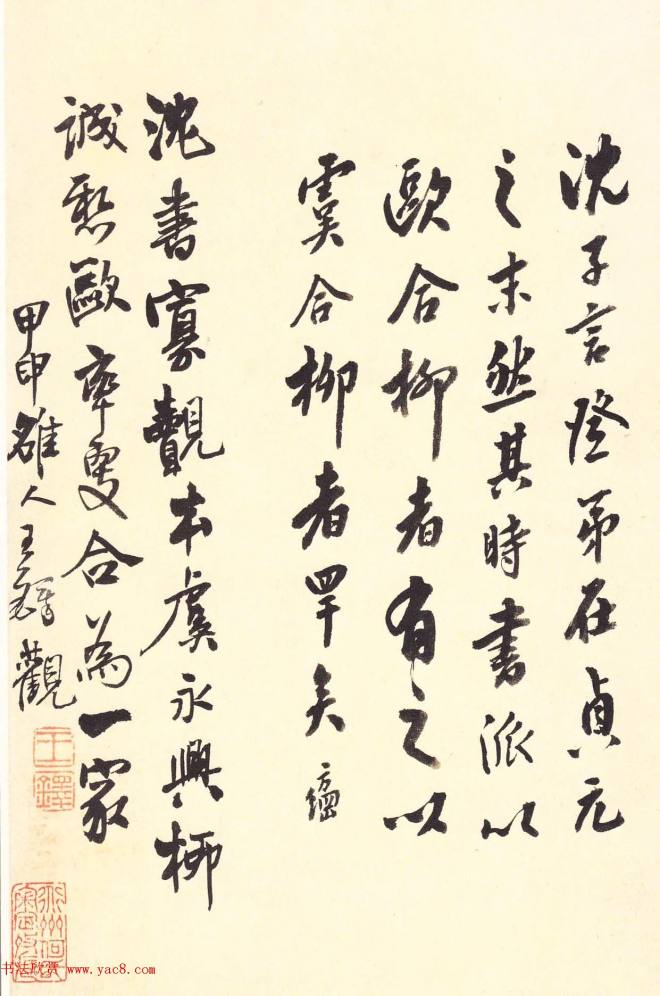 沈子言登第在貞元
之末然其時書派以
歐合柳者有之以
虞合柳者罕矣
沈書寡覿本虞永興柳
誠懸歐率更合為一家
甲申雒人王鐸觀
王鐸
书法欣赏 www.yac8.com